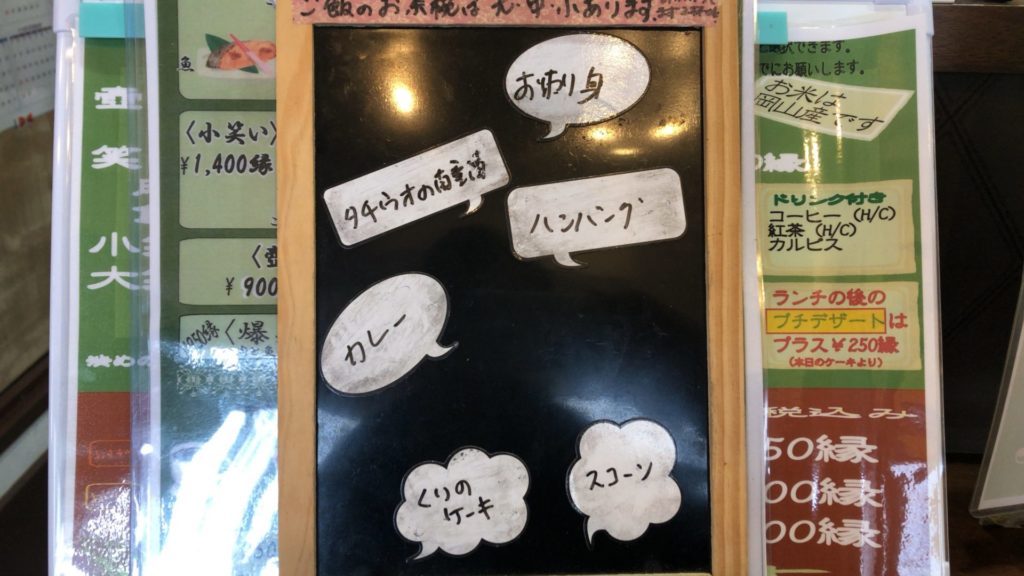 ご飯のお茶碗は大中小あります
お刺り身
タチウオの南蛮漬
ハンバーグ
カレー
くりの
ケーキ
スコーン
魚
〈小笑い〉
¥1,400縁
¥900
〈爆
壺
笑
小
大
択できます。
でにお願いします。
お米は
岡山産です
ドリンク付き
コーヒー (H/C)
紅茶 (H/C)
カルピス
ランチの後の
プチデザートは
プラス¥250縁
(本日のケーキより)
税込み
50縁
00縁
00縁